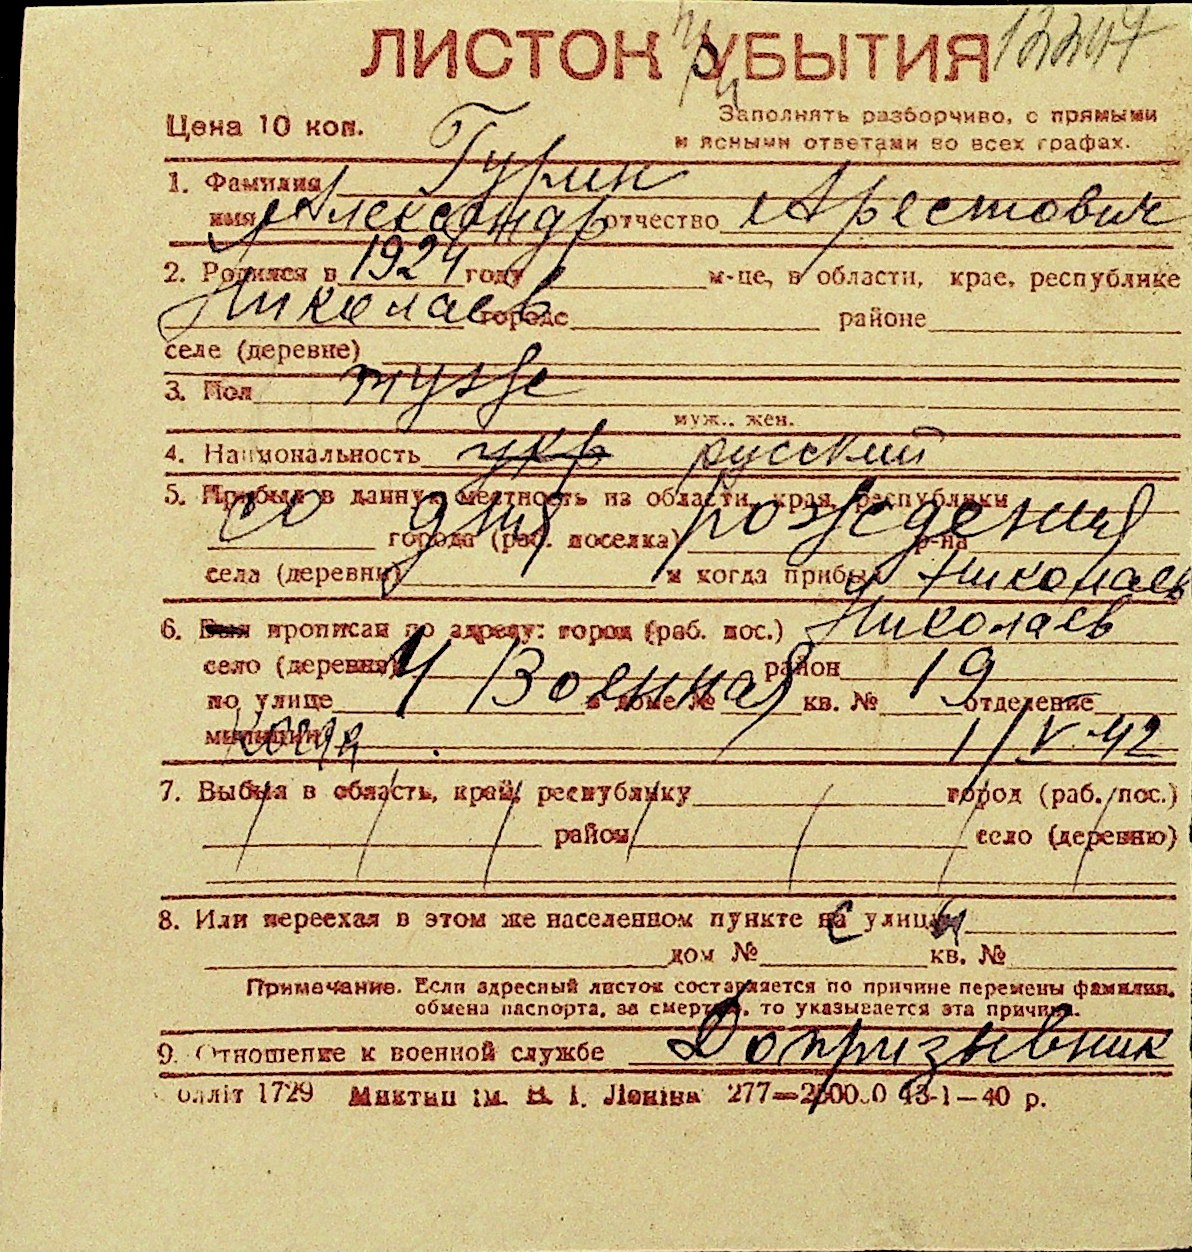 ЛИСТОК УБЫТИЯ 12247
при
Цена 10 коп.
Заполнять разборчиво, с прямыми
и ясными ответами во всех графах.
1. Фамилия Гурин
имя Александр отчество Арестович
2. Родился в 1924 году м-це, в области, крае, республике
Николаев городе районе
селе (деревне)
3. Пол муж
муж., жен.
4. Национальность укр русский
5. Прибыл в данную местность из области, края, республики
со дня рождения
города (раб. поселка) р-на
села (деревни) и когда прибыл Николаев
6. Был прописан по адресу: город (раб. пос.) Николаев
село (деревня) район
по улице 4 Военная в доме № 19 кв. № отделение
милиции 1/V-42
7. Выбыл в область, край, республику город (раб. пос.)
район село (деревню)
8. Или переехал в этом же населенном пункте с улицы
дом № кв. №
Примечание. Если адресный листок составляется по причине перемены фамилии,
обмена паспорта, за смертью, то указывается эта причина.
9. Отношение к военной службе Допризывник
олліт 1729 Миктип ім. В. І. Леніна 277—25000 13-1—40 р.